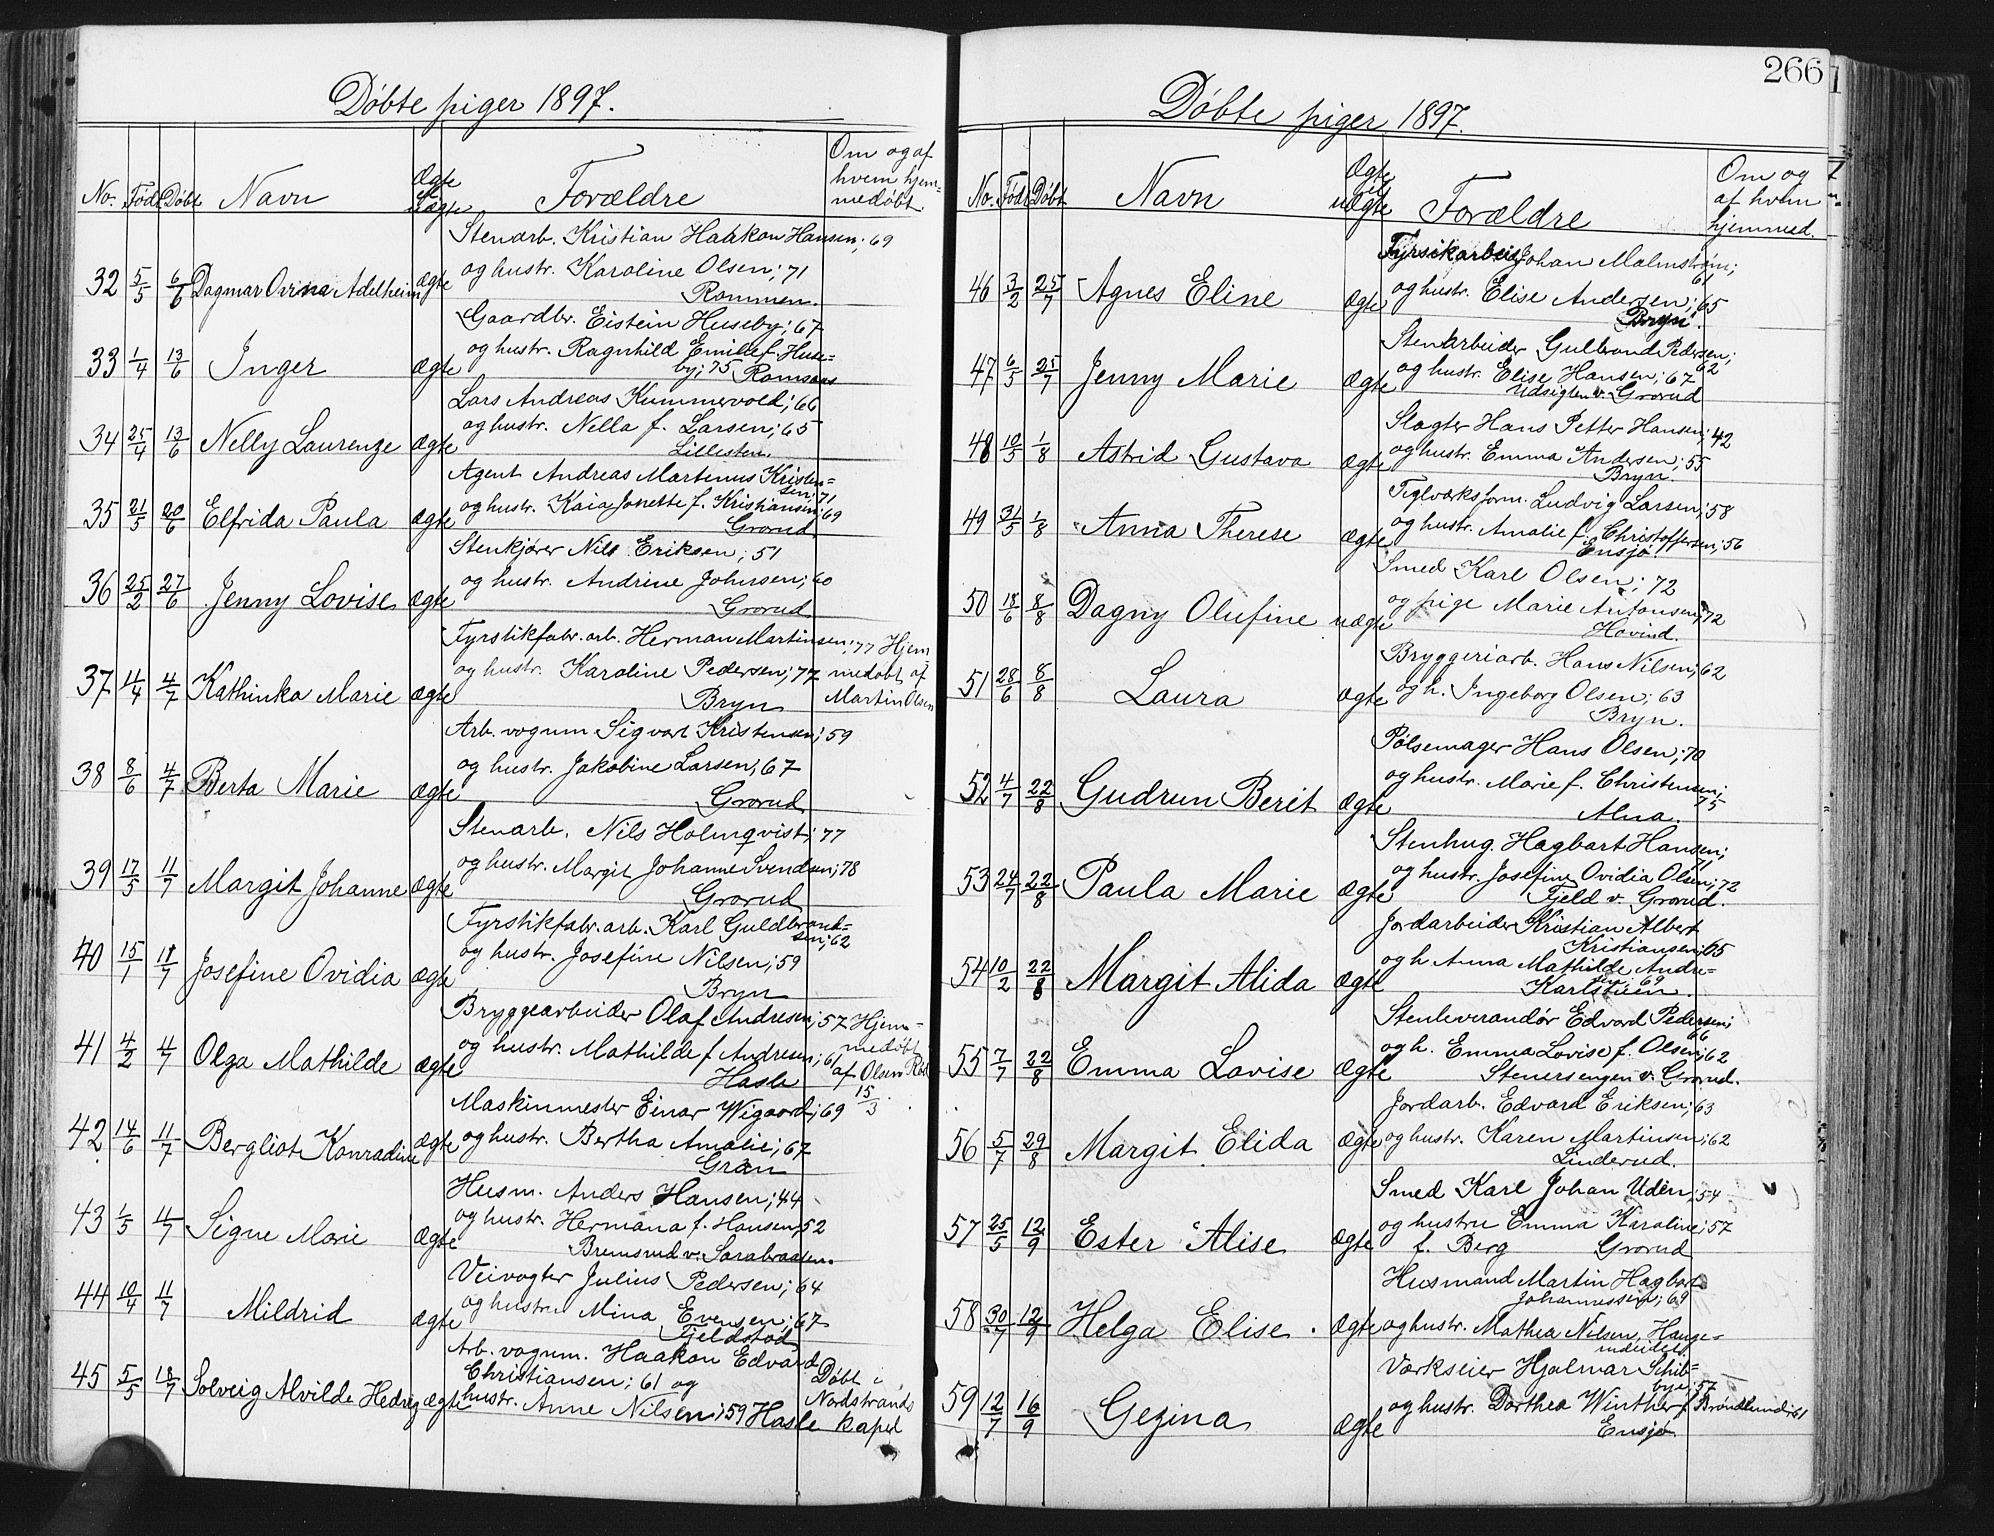 Døbte piger 1897.
No. Født Døbt Navn Ægte Uægte Forældre Om og af hvem hjem=medøbt.
Stenarb. Kristian Haakon Hansen; 69
32 5/5 6/6 Dagmar Ovina Adelheim ægte og hustr. Karoline Olsen; 71
Rommen.
Gaardbr. Eistein Huseby; 67
33 1/4 13/6 Inger ægte og hustr. Ragnhild Emilie f. Huse=
by; 75 Romsaas
Lars Andreas Kummervold; 66
34 25/4 13/6 Nelly Laurenze ægte og hustr. Nella f. Larsen; 65
Lillesten.
Agent Andreas Martinus Kristen=
sen; 71
35 21/5 20/6 Elfrida Paula ægte og hustr. Kaia Jonette f. Kristiansen; 69
Grorud
Stenkjører Nils Eriksen; 51
36 25/2 27/6 Jenny Lovise ægte og hustr. Andrine Johnsen; 60
Grorud
Fyrstikfabr. arb. Herman Martinsen; 77 Hjem
37 11/4 4/7 Kathinka Marie ægte og hustr. Karoline Pedersen; 77 medøbt af
Bryn Martin Olsen
Arb. vognm Sigvart Kristensen; 59
38 8/6 4/7 Berta Marie ægte og hustr. Jakobine Larsen; 67
Grorud
Stenarb. Nils Holmqvist; 77
39 17/5 11/7 Margit Johanne ægte og hustr. Margit Johanne Svendsen; 78
Grorud
Fyrstikfabr. arb. Karl Guldbrand=
sen; 62
40 15/1 18/7 Josefine Ovidia ægte og hustr. Josefine Nilsen; 59
Bryn
Bryggearbeider Olaf Andresen; 57 Hjem=
41 4/2 4/7 Olga Mathilde ægte og hustr. Mathilde f Andresen; 61 medøbt
Hasle af Olsen 15/3
Maskinmester Einar Wigaard; 69
42 14/6 11/7 Bergliot Konradine ægte og hustr. Bertha Amalie; 67
Gran
Husm. Anders Hansen; 44
43 1/5 11/7 Signe Marie ægte og hustr. Hermana f. Hansen; 52
Bremsrud v. Sarabraaten.
Veivogter Julius Pedersen; 64
44 10/4 11/7 Mildrid ægte og hustru Mina Evensen; 67
Fjeldstad
Arb. vognm. Haakon Edvard
45 5/5 18/7 Solveig Alvilde Hedvig ægte Christiansen; 61 og Døbt i
hustr. Anne Nilsen; 59 Hasle Nordstrands
kapel
266
Døbte piger 1897.
No. Født Døbt Navn Ægte ell. uægte Forældre Om og af hvem hjemmed.
Fyrstikarbeid Johan Malmstrøm;
61
46 3/2 25/7 Agnes Eline ægte og hustr. Elise Andersen; 65
Bryn.
Stenarbeider Gulbrand Pedersen;
62
47 6/5 25/7 Jenny Marie ægte og hustr. Elise Hansen; 67
Udsigten v. Grorud
Slagter Hans Petter Hansen; 42
48 10/5 1/8 Astrid Gustava ægte og hustr. Emma Andersen; 55
Bryn.
Teglværksform. Ludvig Larsen; 58
49 31/5 1/8 Anna Therese ægte og hustr. Amalie f. Christoffersen; 56
Ensjø.
Smed Karl Olsen; 72
50 18/6 8/8 Dagny Olufine uægte og pige Marie Antonsen; 72
Hovind.
Bryggeriarb. Hans Nilsen; 62
51 28/6 8/8 Laura ægte og h. Ingeborg Olsen; 63
Bryn.
Pølsemager Hans Olsen; 70
52 4/7 22/8 Gudrun Berit ægte og hustr. Marie f. Christensen;
75
Alna.
Stenhug. Hagbart Hansen;
71
53 24/7 22/8 Paula Marie ægte og hustr. Josefine Ovidia Olsen; 72
Fjeld v. Grorud.
Jordarbeider Kristian Albert
Kristiansen; 65
54 10/2 22/8 Margit Alida ægte og h Anna Mathilde Andre=
sen; 69
Karlstuen.
Stenleverandør Edvard Pedersen;
66
55 7/7 22/8 Emma Lovise ægte og h. Emma Lovise f. Olsen; 62
Stenersengen v. Grorud.
Jordarb. Edvard Eriksen; 63
56 5/7 29/8 Margit Elida ægte og hustr. Karen Martinsen; 62
Linderud.
Smed Karl Johan Udén; 54
57 25/5 12/9 Ester Alise ægte og hustru Emma Karoline; 57
f. Berg Grorud
Husmand Martin Hagbart
Johannessen; 69
58 30/7 12/9 Helga Elise. ægte og hustr. Mathea Nilsen,
Værkseier Hjalmar Schib=
bye; 57
59 12/7 16/9 Gezina ægte og hustr. Dorthea Winther f. Brøndlund; 61
Ensjø